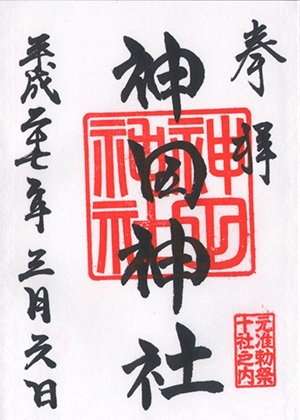 奉拝
元准勅祭
十社之内
神田神社
神田
神社
平成二七年三月六日